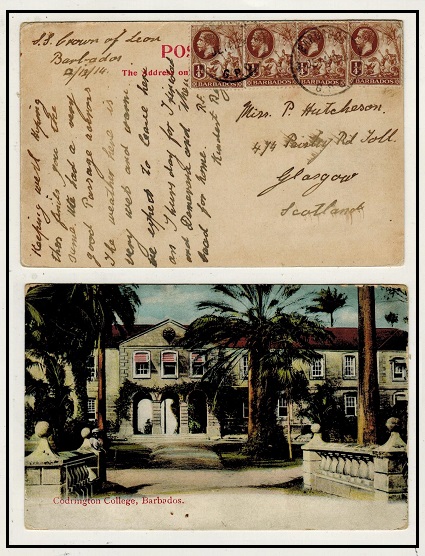 S.S. Crown of Leon
Barbados
2/12/14.
POS
The Address on
BARBADOS
BARBADOS
BARBADOS
BARBADOS
Keeping well hoping
this finds you the
same. We had a very
good Passage across
The weather here is
very wet and warm.
We expect to leave here
on Thursday for Trinidad
and Demerara and then
head for home.
Kindest
Miss. P. Hutcheson.
474 Rd Toll.
Glasgow
Scotland
Codrington College, Barbados.